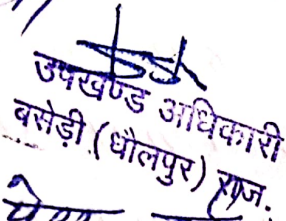 उपखण्ड अधिकारी
बसेड़ी (धौलपुर) राज.